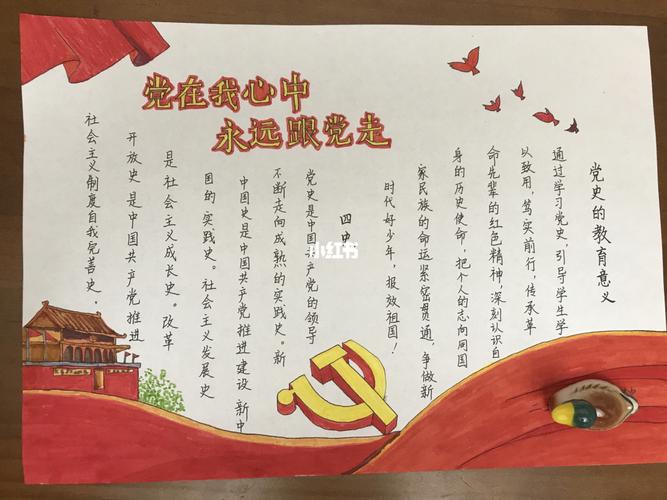 党在我心中
永远跟党走
党史的教育意义
通过学习党史,引导学生学
以致用,笃实前行,传承革
命先辈的红色精神,深刻认识自
身的历史使命,把个人的志向同国
家民族的命运紧密贯通,争做新
时代好少年,报效祖国!
四
小红书
党史是中国共产党的领导
不断走向成熟的实践史。新
中国史是中国共产党推进建设新中
国的实践史。社会主义发展史
是社会主义成长史。改革
开放史是中国共产党推进
社会主义制度自我完善史。